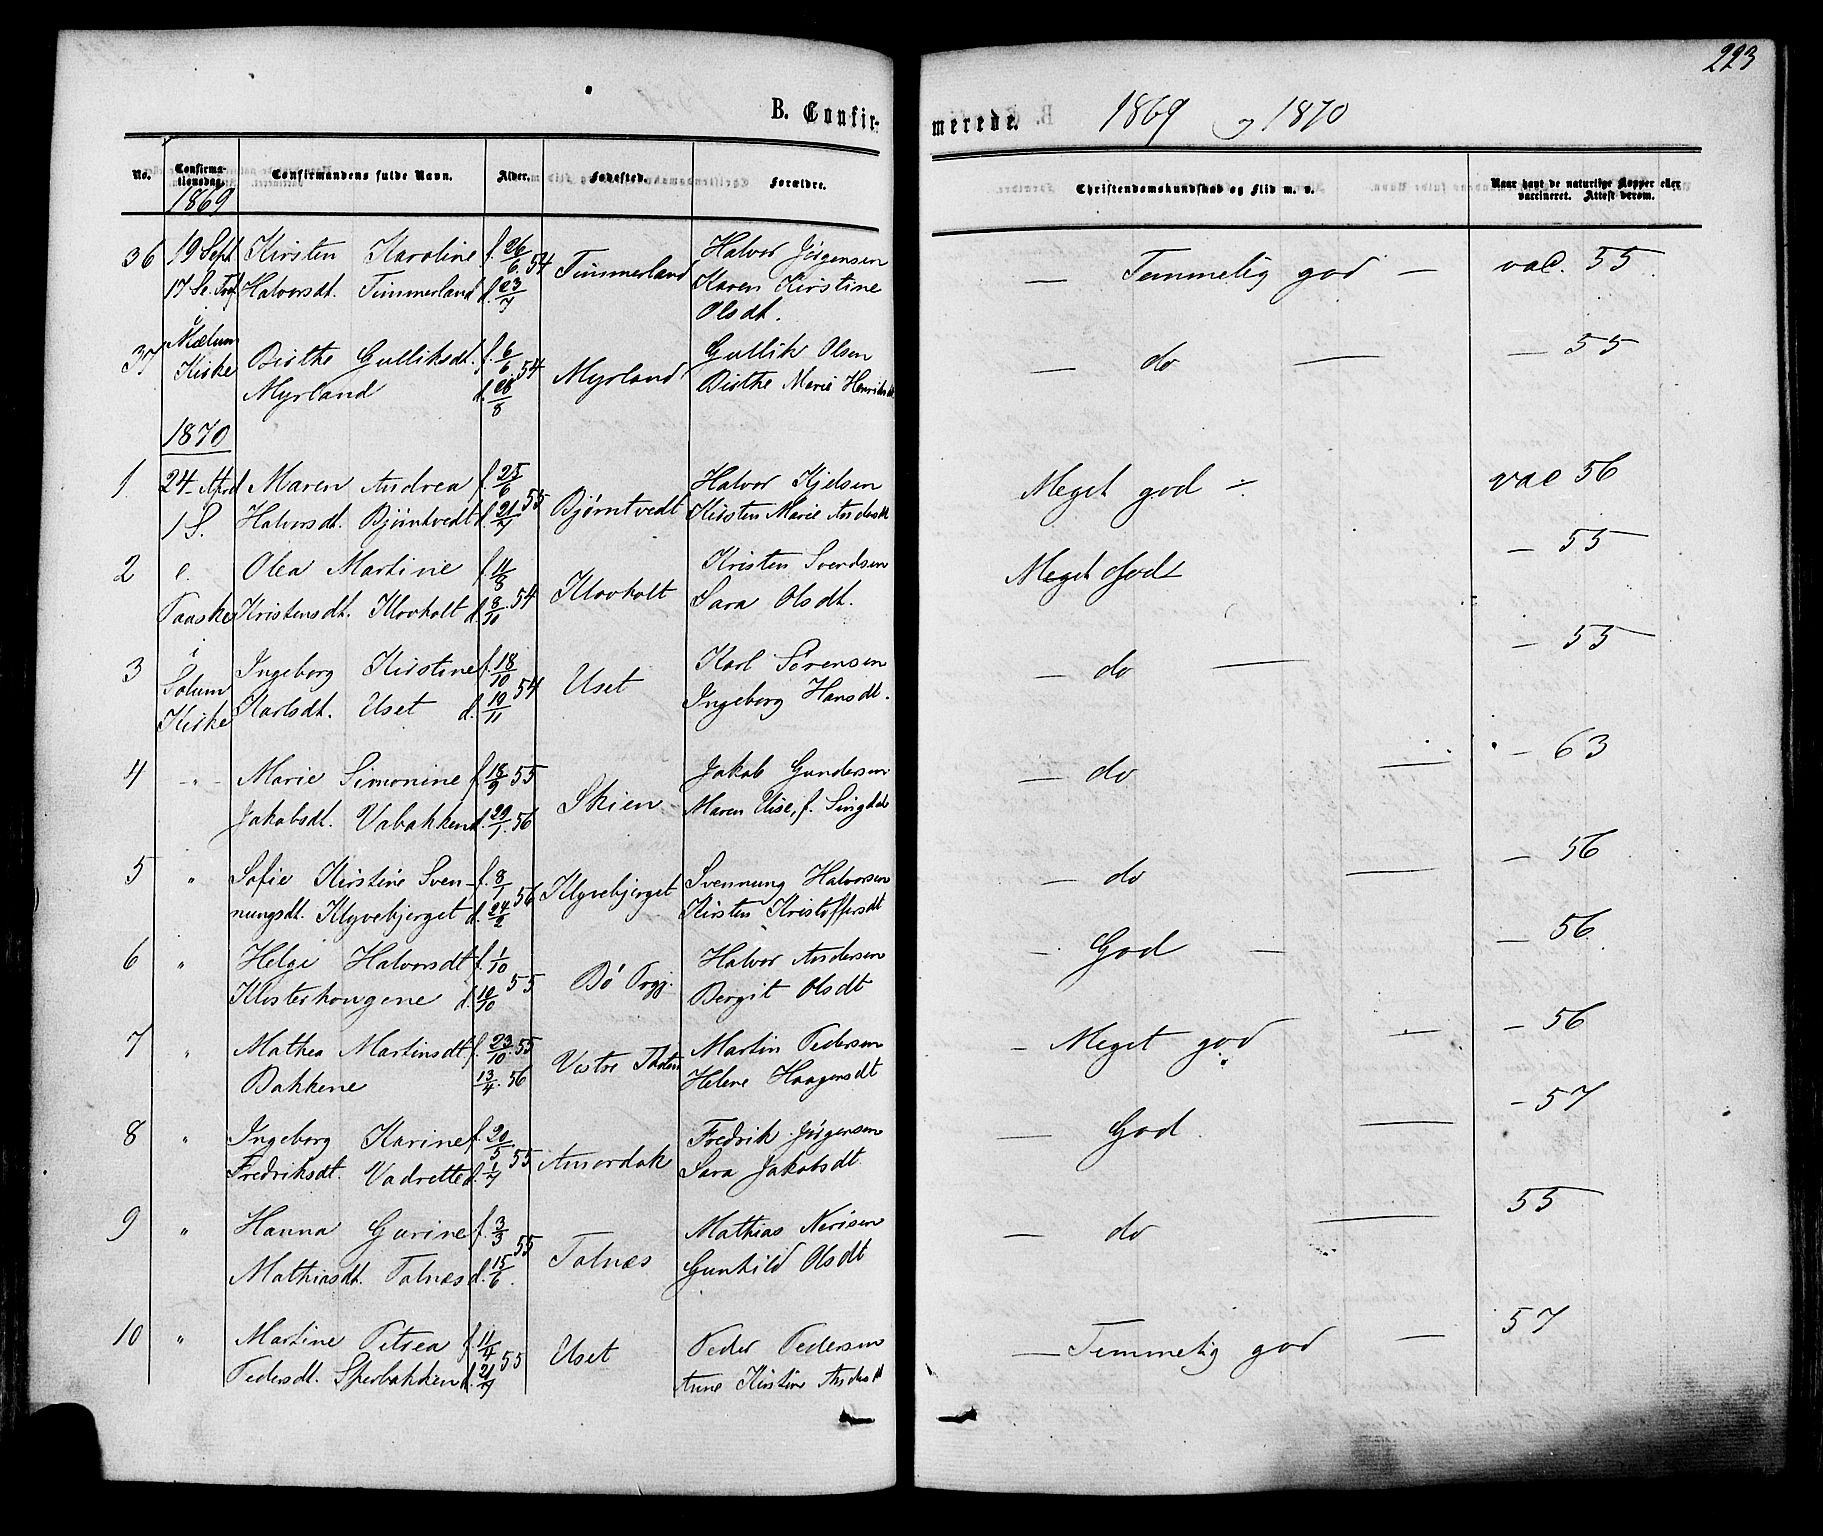 223
B. Confirmerede. 1869 og 1870
No.
Confirmationsdag.
Confirmandens fulde Navn.
Alder.
Fødested.
Forældre.
Christendomskundskab og Flid m. v.
Naar havt de naturlige Kopper eller vaccineret. Attest derom.
1869
36 19 Sept. Kirsten Karoline f. 26/6 54 Timmerland Halvor Jörgensen — Temmelig god — vac. 55
17 S. Tref. Halvorsdt. Timmerland d. 23/7 Karen Kirstine
i Olsdt.
37 Mælum Birthe Gulliksdt. f. 6/6 54 Myrland Gullik Olsen — do — — 55
Kirke Myrland d. 28/8 Birthe Marie Henriksdt
1870
1 24 April Maren Andrea f. 25/6 55 Bjørntvedt Halvor Kjelsen Meget god vac 56
1 S. Halvorsdt. Bjørntvedt d. 21/7 Kirsten Marie Andersdt
2 e. Olea Martine f. 11/8 54 Klovholt Kristen Svendsen Meget God — 55
Paaske Kristensdt. Klovholt d. 8/10 Sara Olsdt.
3 i Ingeborg Kirstine f. 18/10 54 Uset Karl Sörensen — do — — 55
Solum Karlsdt. Uset d. 19/11 Ingeborg Hansdt.
Kirke
4 -"- Marie Simonine f. 18/9 55 Skien Jakob Gundersen — do — — 63
Jakobsdt. Vabakken d. 20/1 56 Maren Elise, f.
5 " Sofie Kirstine Sven- f. 8/1 56 Klyvebjerget Svennung Halvorsen — do — — 56
nungsdt. Klyvebjerget d. 24/2 Kirsten Kristoffersdt
6 " Helge Halvorsdt f. 1/10 55 Bö Prgj. Halvor Andersen — God — — 56
Klosterhougene d. 10/10 Bergit Olsdt
7 " Mathea Martinsdt. f. 23/10 55 Vestre Thoten Martin Pedersen — Meget god — — 56
Bakkene 13/4 56 Helene Haagensdt
8 " Ingeborg Karine f. 20/5 55 Amordak Fredrik Jörgensen — God. — — 57
Fredriksdt. Vadrette d. 1/7 Sara Jakobsdt.
9 " Hanna Gurine f. 3/3 55 Tolnæs Mathias Nerisen — do — 55
Mathiasdt. Tolnæs d. 15/6. Gunhild Olsdt
10 " Martine Petrea f. 11/4 55 Uset Peder Pedersen — Temmelig god — 57
Pedersdt. Sperbakken d. 21/9 Anne Kirstine Andersdt